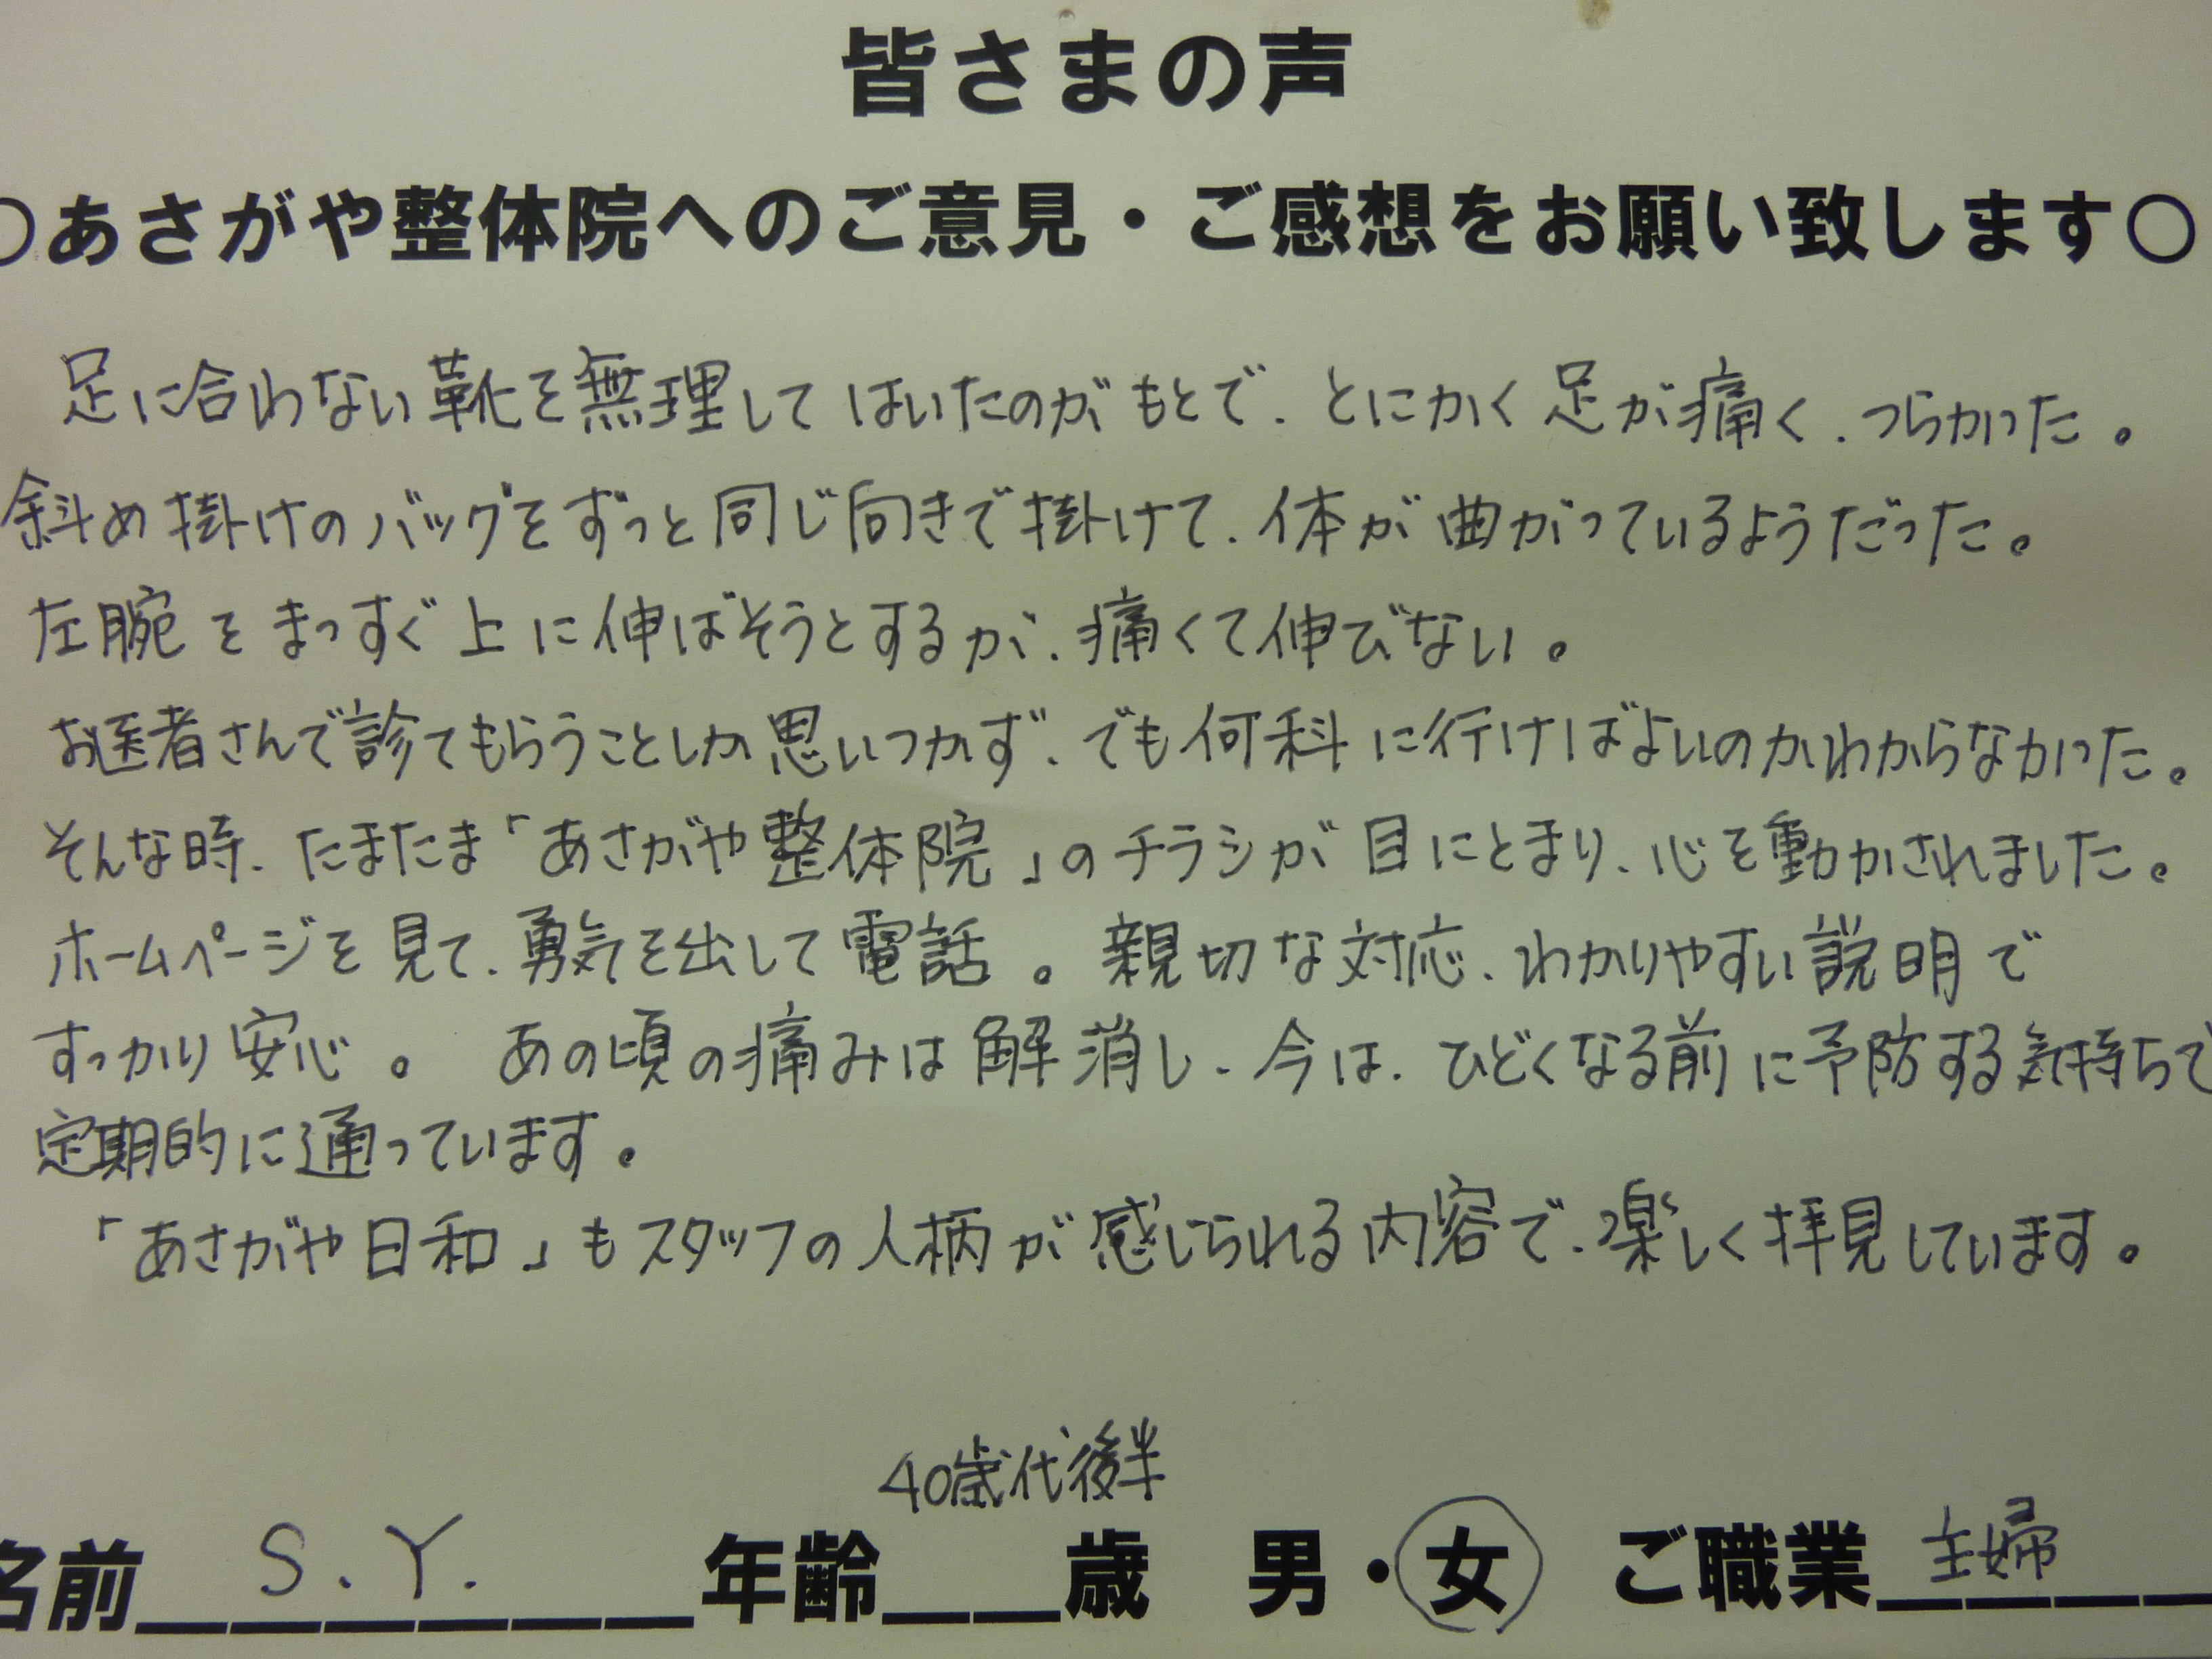 皆さまの声
○あさがや整体院へのご意見・ご感想をお願い致します○
足に合わない靴を無理してはいたのがもとで、とにかく足が痛く、つらかった。
斜め掛けのバッグをずっと同じ向きで掛けて、体が曲がっているようだった。
左腕をまっすぐ上に伸ばそうとするが、痛くて伸びない。
お医者さんで診てもらうことしか思いつかず、でも何科に行けばよいのかわからなかった。
そんな時、たまたま「あさがや整体院」のチラシが目にとまり、心を動かされました。
ホームページを見て、勇気を出して電話。親切な対応、わかりやすい説明で
すっかり安心。 あの頃の痛みは解消し、今は、ひどくなる前に予防する気持ちで
定期的に通っています。
「あさがや日和」もスタッフの人柄が感じられる内容で、楽しく拝見しています。
40歳代後半
名前 S.Y. 年齢____歳 男・女 ご職業 主婦